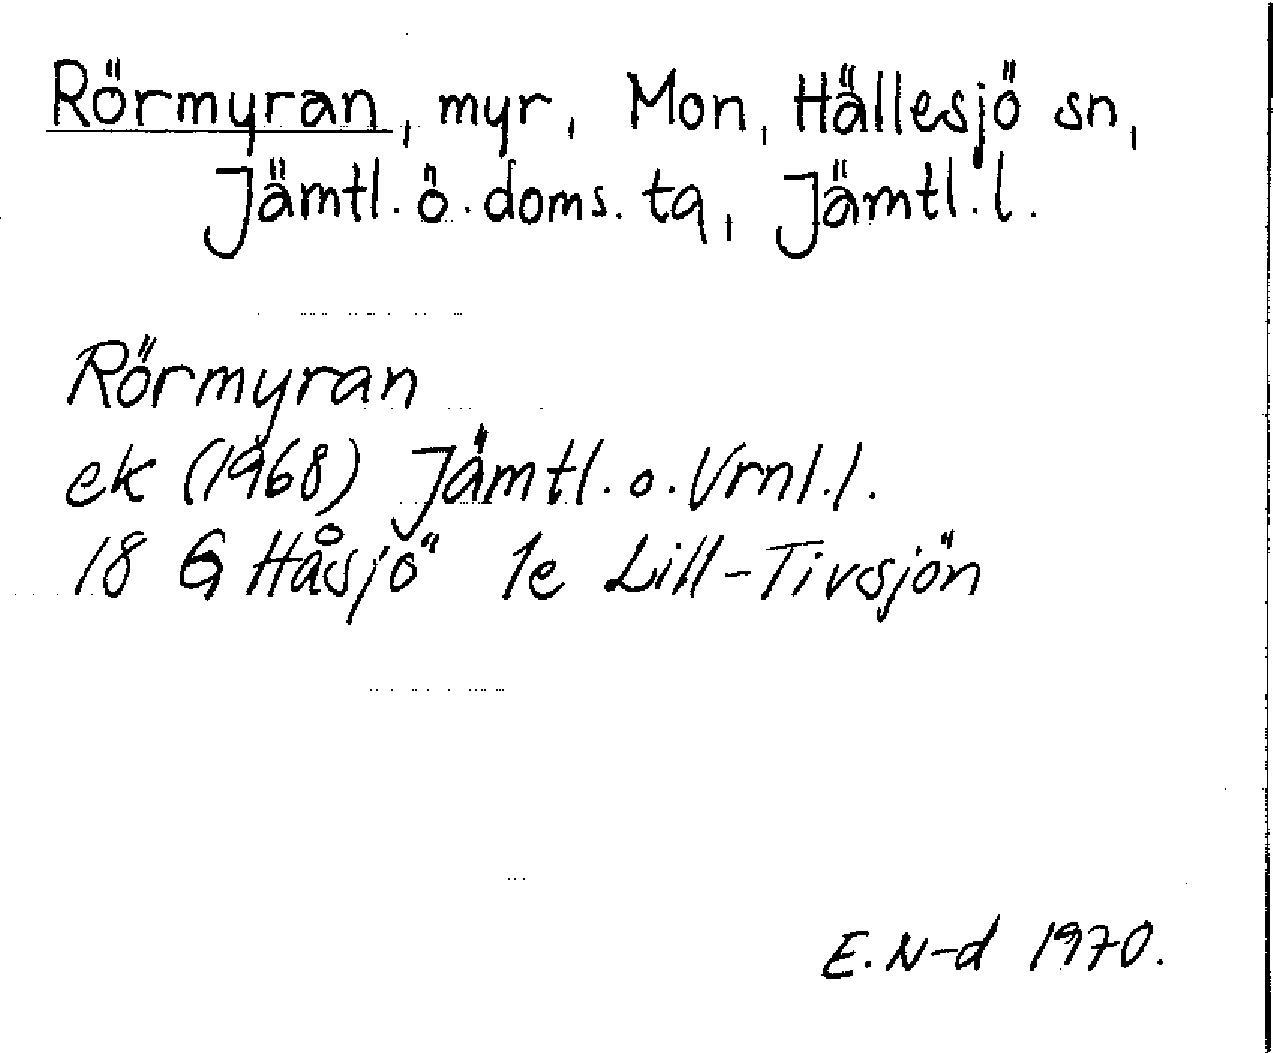 Rörmyran, myr, Mon, Hällesjö sn,
Jämtl. ö. doms. tg, Jämtl. l.
Rörmyran
ek (1968) Jämtl. o. Vrnl. l.
18 G Håsjö 1e Lill-Tivsjön
E. N-d 1970.